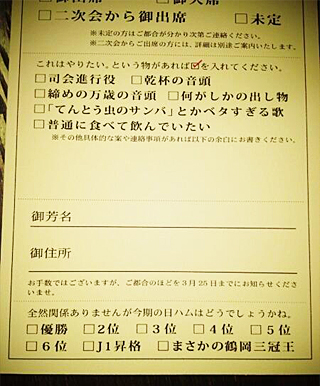 □二次会から御出席 □未定
※未定の方はご都合が分かり次第ご連絡ください。
※二次会からご出席の方には、詳細は別途ご案内いたします。
これはやりたい。という物があれば☑を入れてください。
□司会進行役 □乾杯の音頭
□締めの万歳の音頭 □何がしかの出し物
□「てんとう虫のサンバ」とかベタすぎる歌
□普通に食べて飲んでいたい
※その他具体的な案や連絡事項があれば以下の余白にお書きください。
御芳名
御住所
お手数ではございますが、ご都合のほどを3月25日までにお知らせくださ
いませ。
全然関係ありませんが今期の日ハムはどうでしょうかね。
□優勝 □2位 □3位 □4位 □5位
□6位 □J1昇格 □まさかの鶴岡三冠王